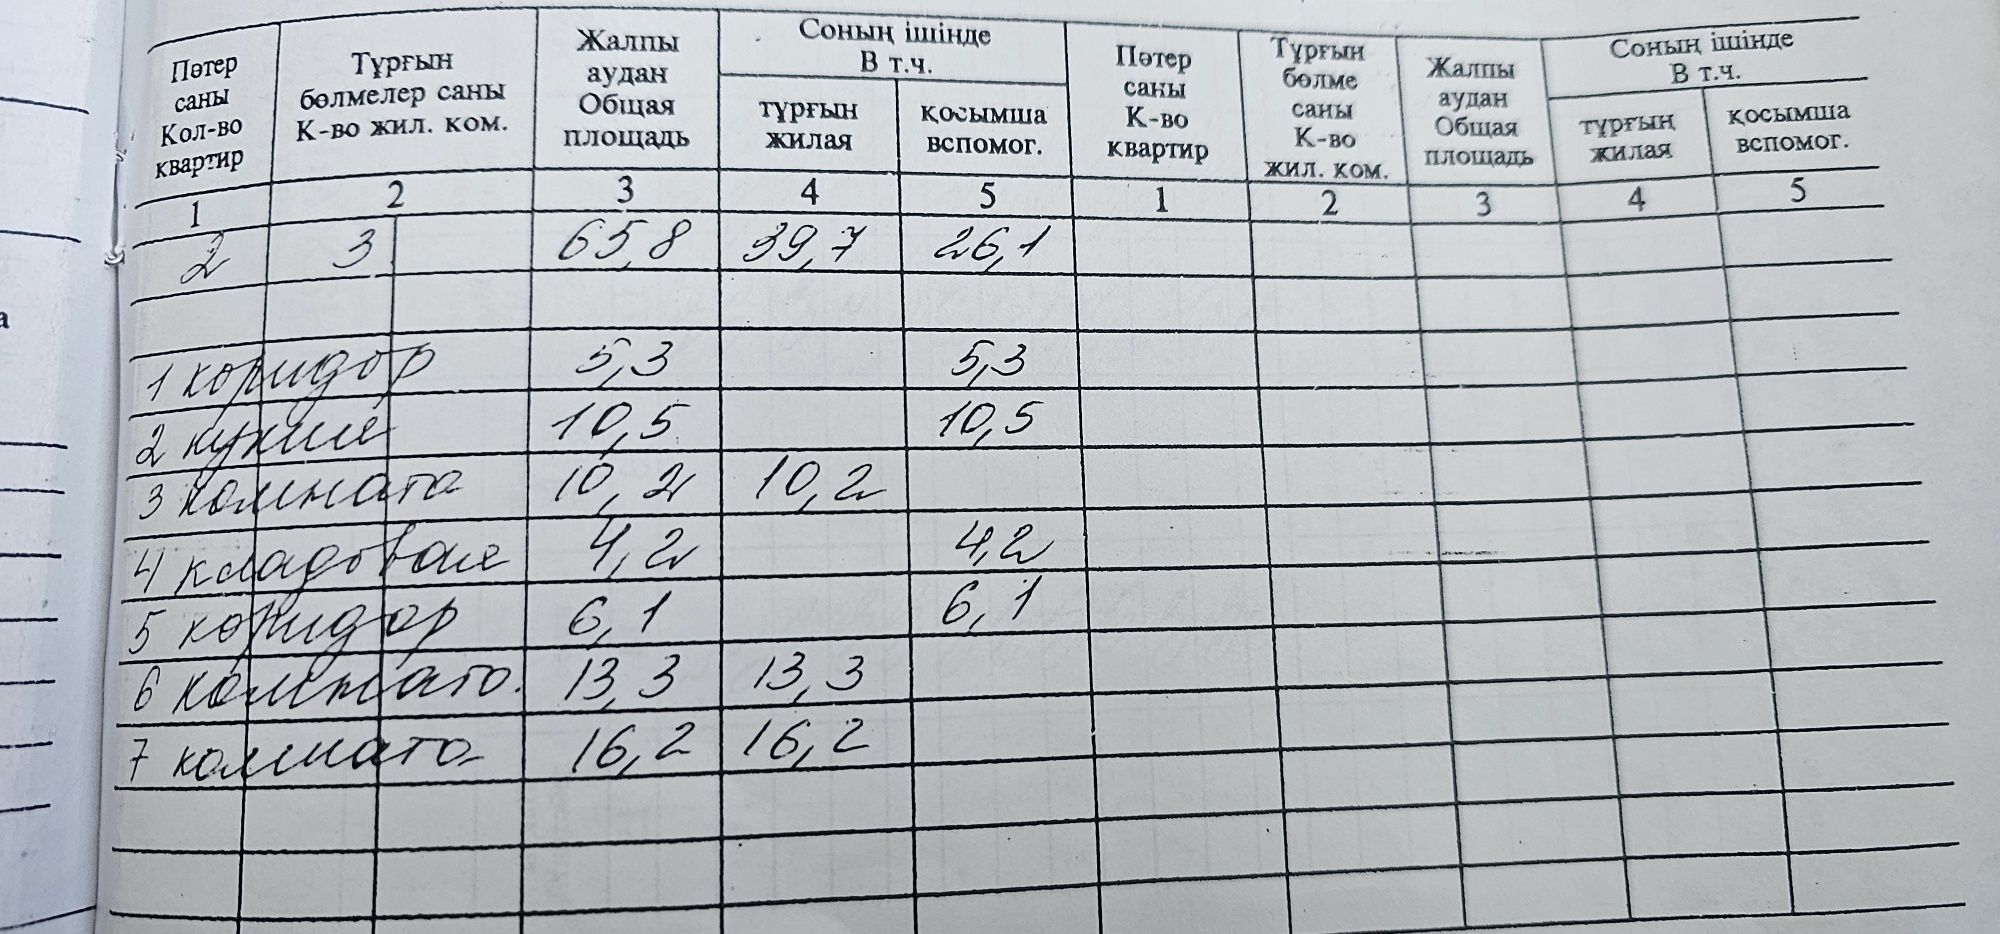 Пәтер саны Кол-во квартир | Тұрғын бөлмелер саны К-во жил. ком. | Жалпы аудан Общая площадь | Соның ішінде В т.ч. | Пәтер саны К-во квартир | Тұрғын бөлме саны К-во жил. ком. | Жалпы аудан Общая площадь | Соның ішінде В т.ч.
тұрғын жилая | қосымша вспомог. | тұрғын жилая | қосымша вспомог.
1 | 2 | 3 | 4 | 5 | 1 | 2 | 3 | 4 | 5
2 | 3 | 65,8 | 39,7 | 26,1
1 коридор | 5,3 | 5,3
2 кухня | 10,5 | 10,5
3 комната | 10,2 | 10,2
4 кладовая | 4,2 | 4,2
5 коридор | 6,1 | 6,1
6 комната | 13,3 | 13,3
7 комната | 16,2 | 16,2
а